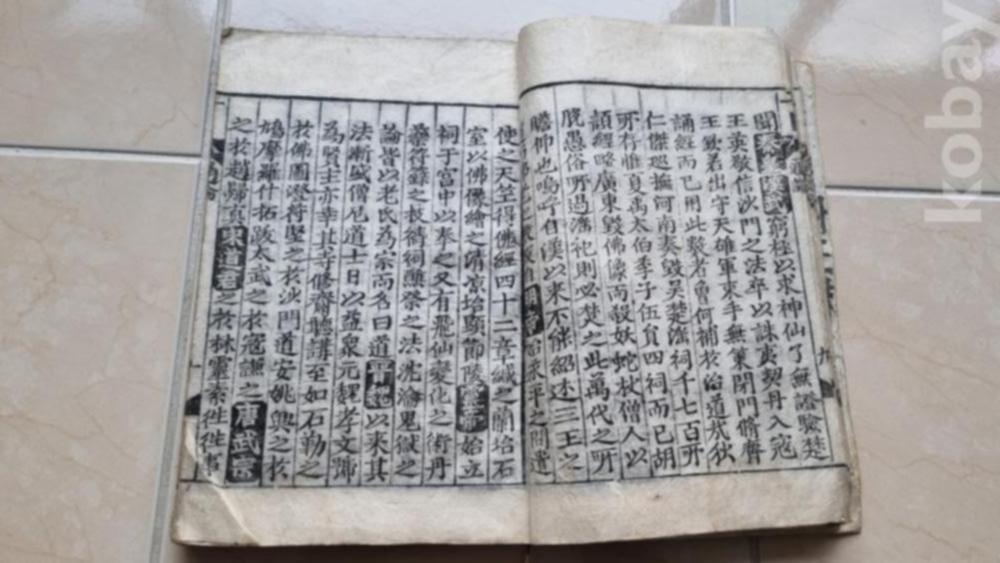 聞秦皇漢武窮極以求神仙了無證驗楚
王英敬信沙門之法卒以誅夷契丹入寇
王欽若出守天雄軍束手無策閉門修齋
誦經而已用此數者會何補於治道哉狄
仁傑巡撫河南奏毀吳楚淫祠千七百所
所存惟夏禹太伯季子伍員四祠而已胡
頴經略廣東毀佛像而殺妖蛇杖僧人以
脫愚俗所過淫祀則必焚之此萬代之所
瞻仰也嗚呼自漢以來不能紹述三王之
明帝 永平之間遣
使之天竺得佛經四十二章緘之蘭坮石
室以佛像繪之清凉坮顯節陵靈帝始立
祠于宮中以奉之又有飛仙變化之術丹
藥符籙之技禱祠醮祭之法沈淪鬼獄之
論皆以老氏為宗而名曰道 以來其
法漸盛僧尼道士日以益衆元魏孝文號
為賢主亦幸其寺修齋聽講至如石勒之
於佛圖澄符堅之於沙門道安姚興之於
鳩摩羅什拓跋太武之於寇謙之唐武宗
之於趙歸真宋道君之於林靈素徃徃事
kobay